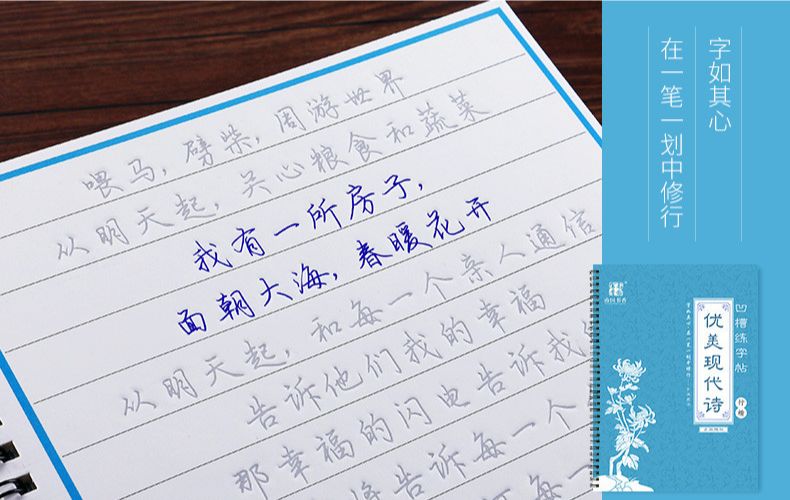 喂马，劈柴，周游世界
从明天起，关心粮食和蔬菜
我有一所房子，
面朝大海，春暖花开
从明天起，和每一个亲人通信
告诉他们我的幸福
那幸福的闪电告诉我的
将告诉每一个
字如其心
在一笔一划中修行
凹槽练字帖
优美现代诗
行楷